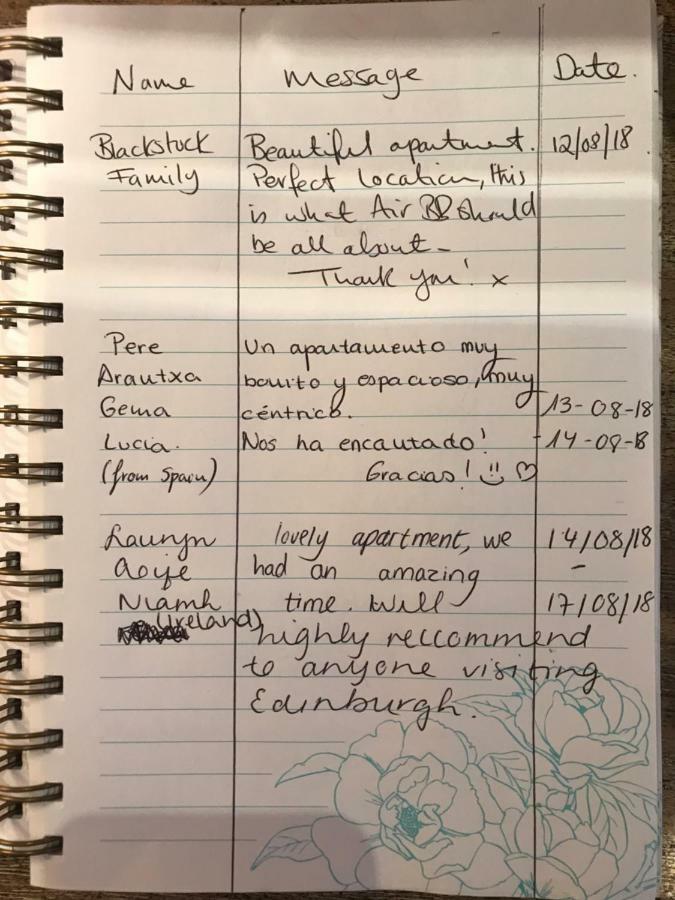 Name Message Date.
Blackstock Beautiful apartment. 12/08/18.
Family Perfect Location, this
is what Air BB should
be all about -
Thank you! x
Pere Un apartamento muy
Arantxa bonito y espacioso, muy
Gema céntrico. 13-08-18
Lucía. Nos ha encantado! -14-08-18
(from Spain) Gracias!
Lauryn lovely apartment, we 14/08/18
Aoife had an amazing -
Niamh time. Will 17/08/18
(Ireland) highly reccommend
to anyone visiting
Edinburgh.